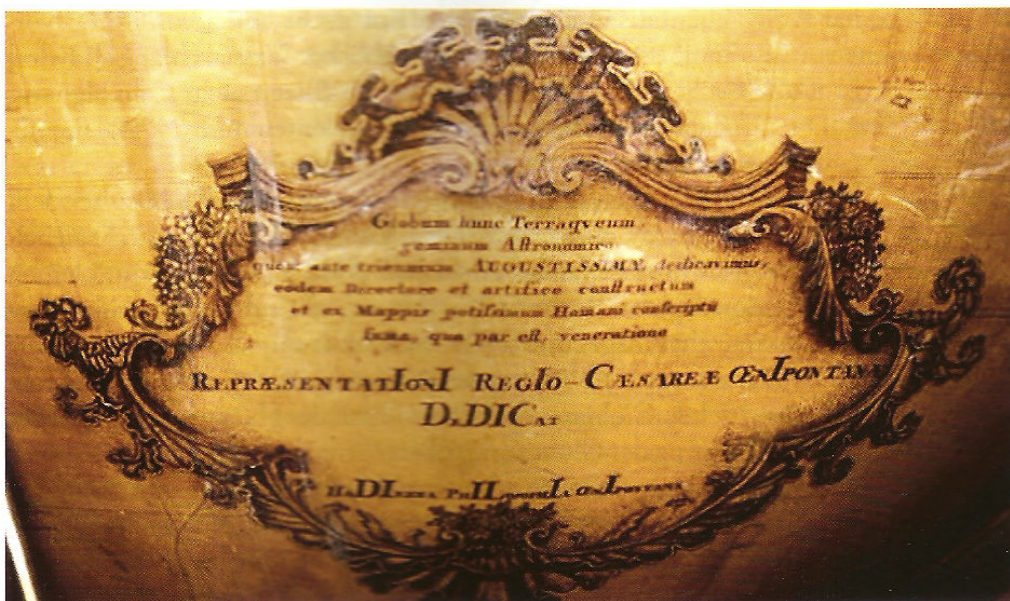 Globum hunc Terraqveum
geminum Aſtronomico
quem ante triennium AUGUSTISSIMÆ dedicavimus,
eodem Directore et artifice conſtructum
et ex Mappis potiſsimum Homann conſcriptū
ſuma, qua par eſt, veneratione
REPRÆSENTATIonI REGIo-CÆSAREÆ ŒnIPONTANÆ
DEDICAT